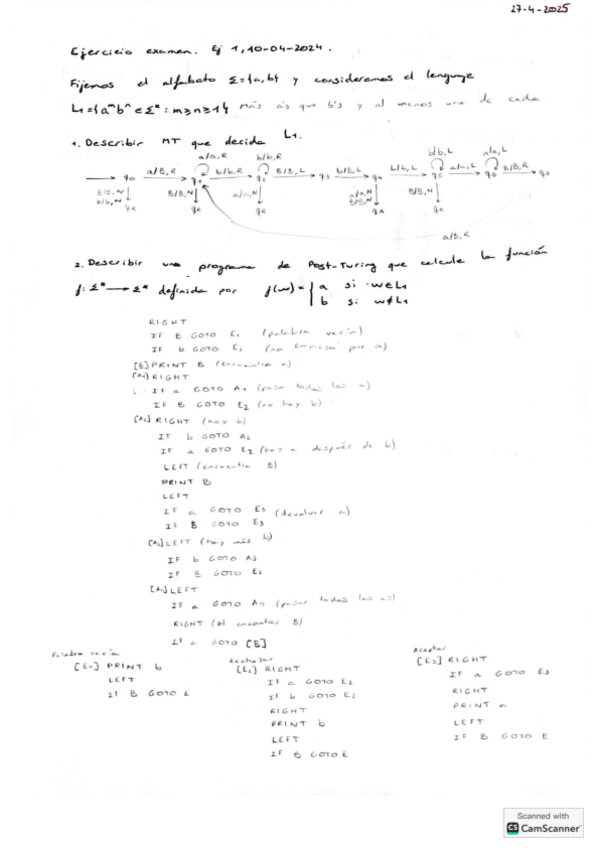 27-4-2025
Ejercicio examen. Ej 1, 10-04-2024.
Fijemos el alfabeto Σ={a,b} y consideramos el lenguaje
L₁={aᵐbⁿ ∈ Σ* : m≥n≥1} Más a's que b's y al menos una de cada
1. Describir MT que decida L₁.
a/a,R b/b,R b/b,L a/a,L
q₀ a/B,R q₁ b/b,R q₂ B/B,L q₃ b/B,L q₄ b/b,L q₅ a/a,L q₆ B/B,R q₇
B/B,N b/b,N B/B,N a/a,N a/a,N B/B,N B/B,N
qR qR qR qA qR
a/B,R
2. Describir un programa de Post-Turing que calcule la función
f: Σ* → Σ* definida por f(w) = { a si w∈L₁
b si w∉L₁
RIGHT
IF B GOTO E₁ (palabra vacía)
IF b GOTO E₂ (no empieza por a)
[B] PRINT B (encuentra a)
[A₁] RIGHT
IF a GOTO A₁ (pasa todas las a)
IF B GOTO E₂ (no hay b)
[A₂] RIGHT (hay b)
IF b GOTO A₂
IF a GOTO E₂ (hay a después de b)
LEFT (encuentra B)
PRINT B
LEFT
IF a GOTO E₃ (devolver a)
IF B GOTO E₃
[A₃] LEFT (hay más b)
IF b GOTO A₃
IF B GOTO E₂
[A₄] LEFT
IF a GOTO A₄ (pasar todas las as)
RIGHT (al encontrar B)
IF a GOTO [B]
Palabra vacía
[E₁] PRINT b
LEFT
IF B GOTO E
Rechazar
[E₂] RIGHT
IF a GOTO E₂
IF b GOTO E₂
RIGHT
PRINT b
LEFT
IF B GOTO E
Aceptar
[E₃] RIGHT
IF a GOTO E₃
RIGHT
PRINT a
LEFT
IF B GOTO E
Scanned with
CS CamScanner